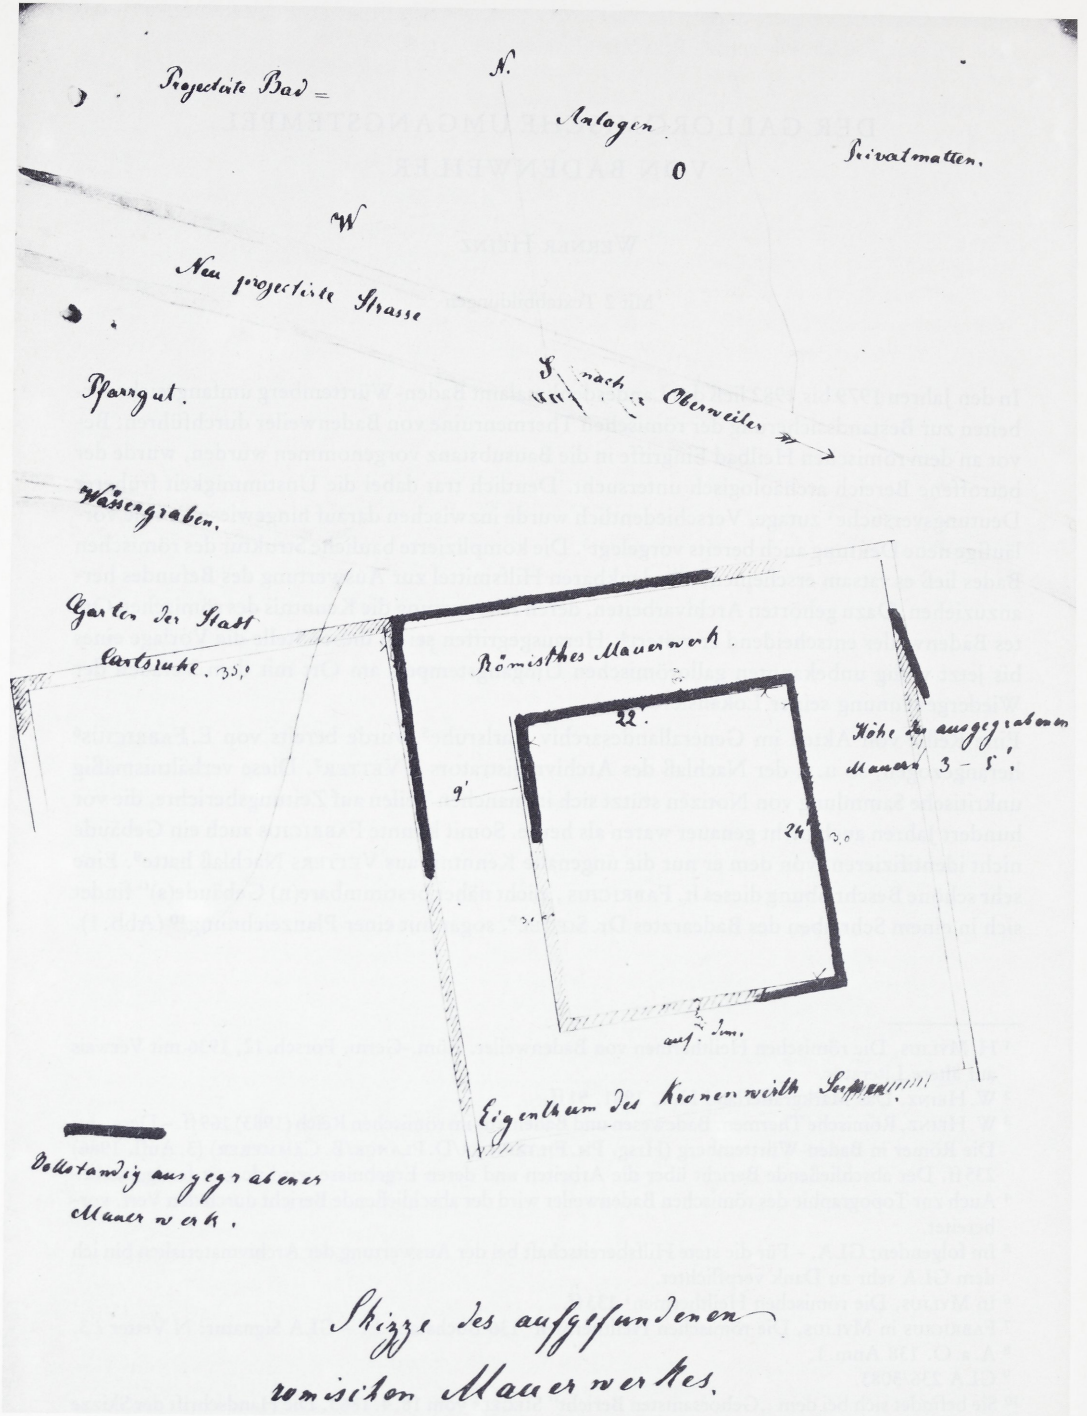 N.
Projectirte Bad=
Anlagen
Privatmatten.
O
W
Neu projectirte Strasse
S
nach Oberweiler
Pfarrgut.
Wässergraben.
Garten der Stadt
Carlsruhe.
Römisches Mauerwerk
22'.
Höhe der ausgegrabenen
Mauern 3 – 5'.
9'
24'
auf
Eigenthum des Kronenwirth
Vollständig ausgegrabener
Mauerwerk.
Skizze des aufgefundenen
römischen Mauerwerkes.